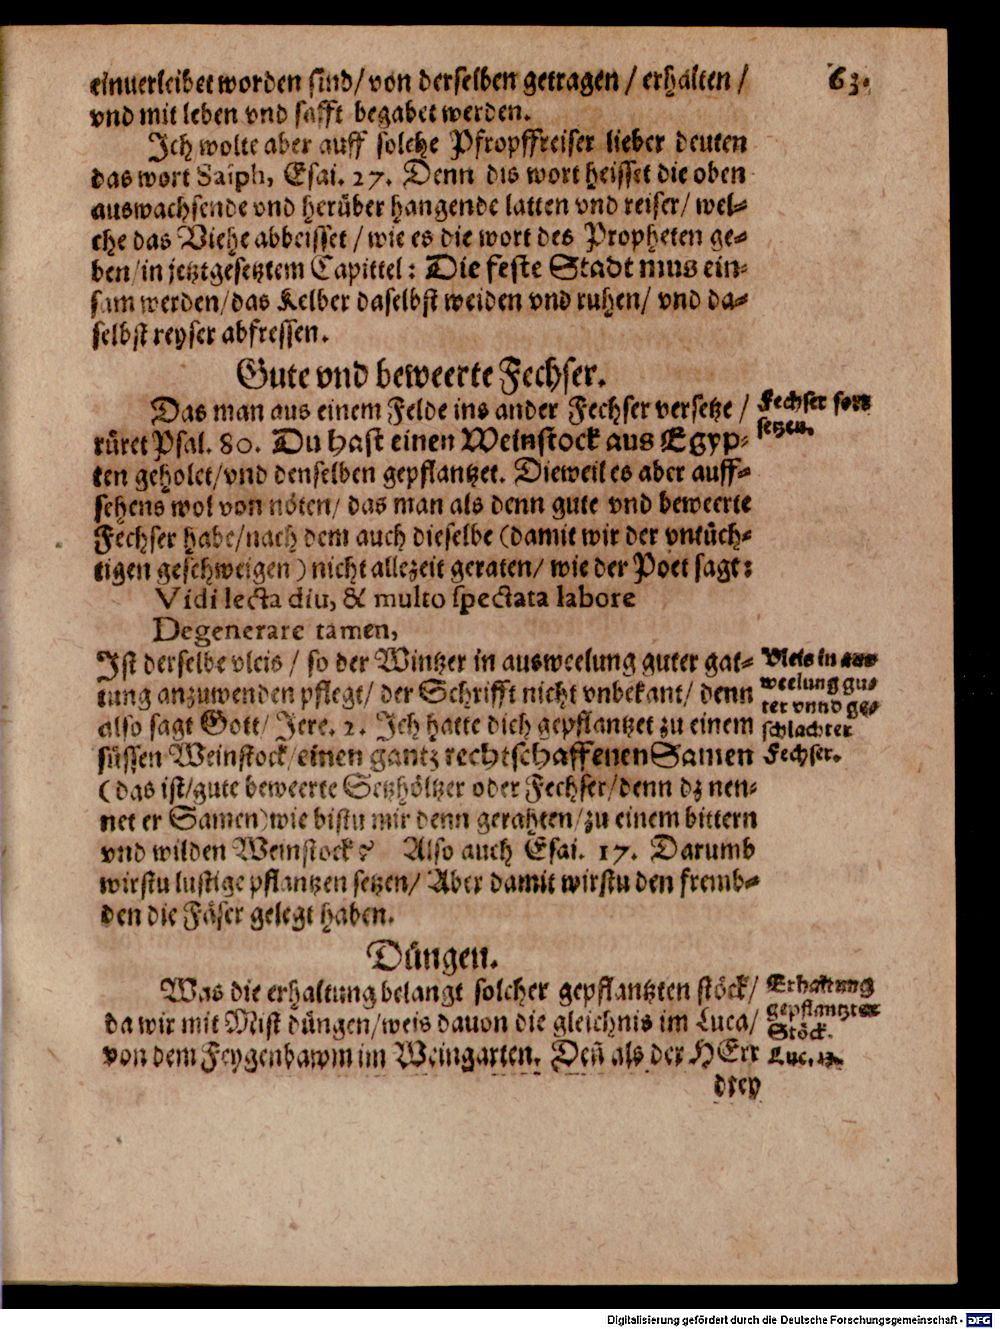 63.
einuerleibet worden sind/ von derselben getragen / erhalten /
vnd mit leben vnd safft begabet werden.
Ich wolte aber auff solche Pfropffreiser lieber deuten
das wort Saiph, Esai. 27. Denn dis wort heisset die oben
auswachsende vnd herüber hangende latten vnd reiser/ wel-
che das Viehe abbeisset / wie es die wort des Propheten ge-
ben/ in jetztgesetztem Capittel: Die feste Stadt mus ein-
sam werden/ das Kelber daselbst weiden vnd ruhen/ vnd da-
selbst reyser abfressen.
Gute vnd beweerte Fechser.
Das man aus einem Felde ins ander Fechser versetze /
rüret Psal. 80. Du hast einen Weinstock aus Egyp-
ten geholet/ vnd denselben gepflantzet. Dieweil es aber auff-
sehens wol von nöten/ das man als denn gute vnd beweerte
Fechser habe/ nach dem auch dieselbe (damit wir der vntüch-
tigen geschweigen) nicht allezeit geraten/ wie der Poet sagt:
Vidi lecta diu, & multo spectata labore
Degenerare tamen,
Ist derselbe vleis / so der Wintzer in ausweelung guter gat-
tung anzuwenden pflegt/ der Schrifft nicht vnbekant/ denn
also sagt Gott/ Jere. 2. Ich hatte dich gepflantzet zu einem
süssen Weinstock/ einen gantz rechtschaffenen Samen
(das ist/ gute beweerte Setzhöltzer oder Fechser/ denn dz nen-
net er Samen) wie bistu mir denn gerahten/ zu einem bittern
vnd wilden Weinstock? Also auch Esai. 17. Darumb
wirstu lustige pflantzen setzen/ Aber damit wirstu den fremb-
den die Fäser gelegt haben.
Düngen.
Was die erhaltung belangt solcher gepflantzten stöck/
da wir mit Mist düngen/ weis dauon die gleichnis im Luca/
von dem Feygenbawm im Weingarten. Deñ als der HErr
drey
Fechser fort
setzen.
Vleis in aus
weelung gu-
ter vnnd ge-
schlachter
Fechser.
Erhaltung
gepflantzter
Stöck.
Luc. 13.
Digitalisierung gefördert durch die Deutsche Forschungsgemeinschaft - DFG